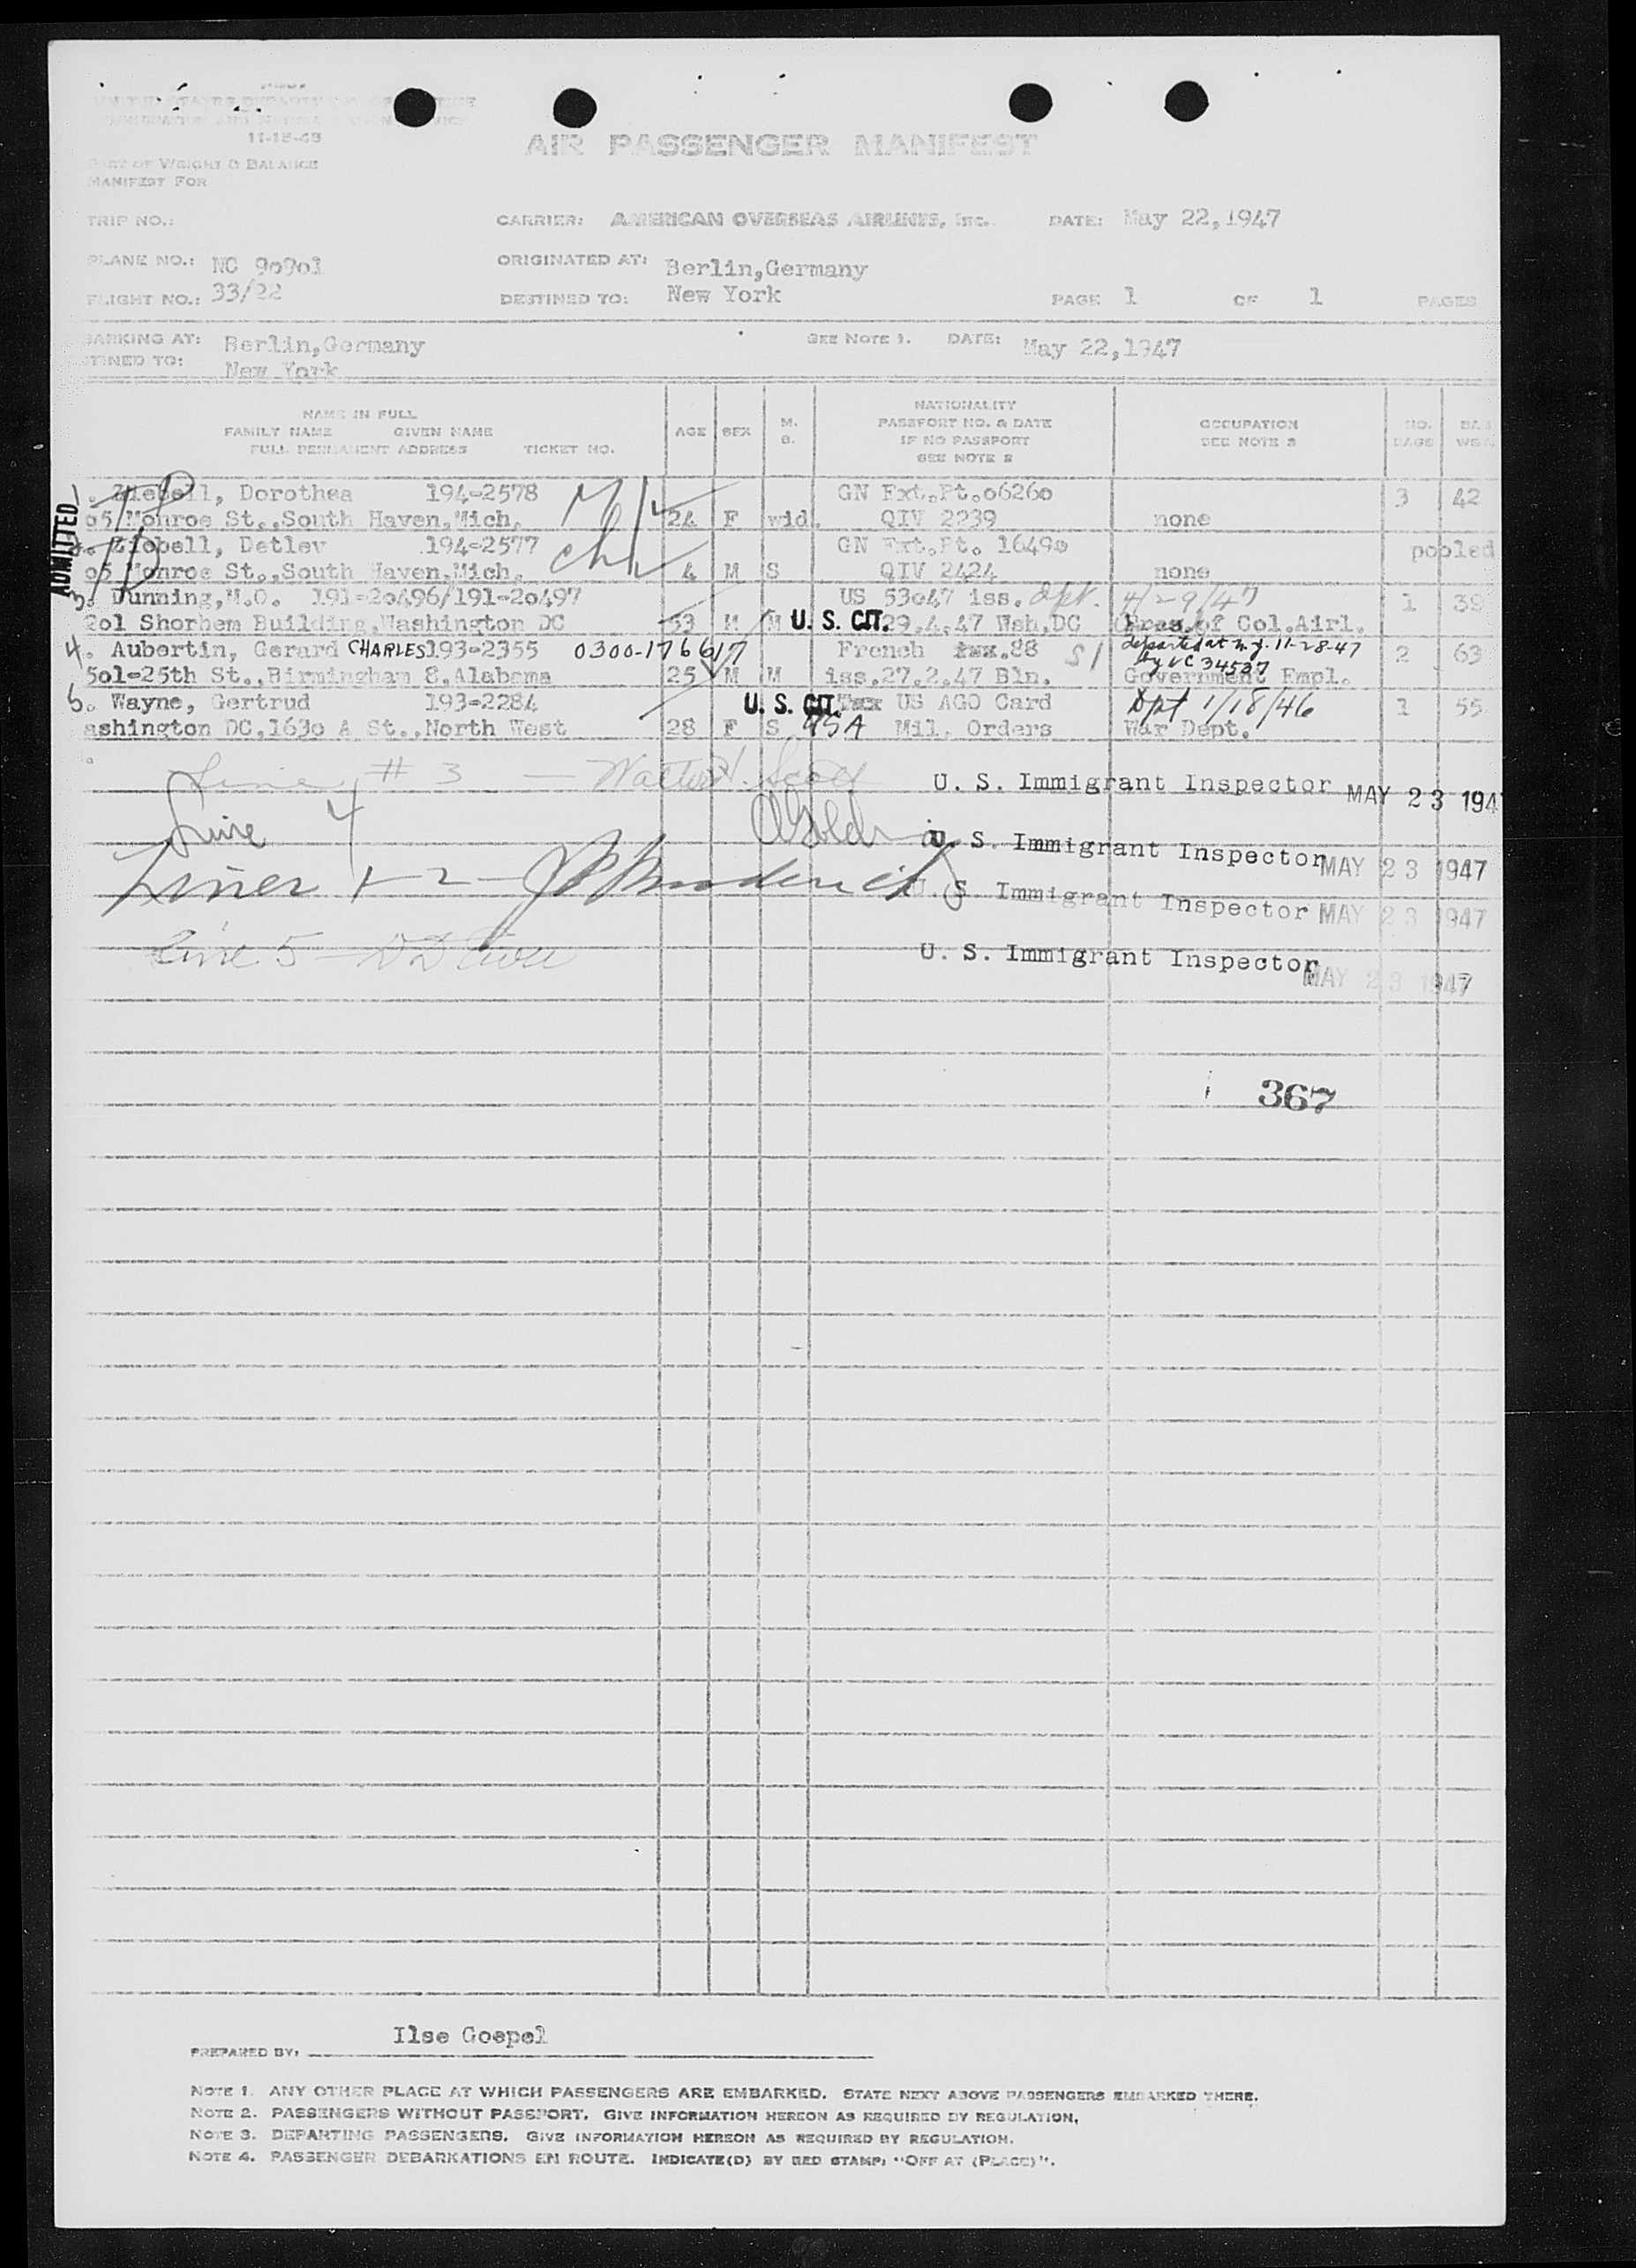 UNITED STATES DEPARTMENT OF JUSTICE
IMMIGRATION AND NATURALIZATION SERVICE
11-15-48
PART OF WEIGHT & BALANCE
MANIFEST FOR
AIR PASSENGER MANIFEST
TRIP NO.: CARRIER: AMERICAN OVERSEAS AIRLINES, INC. DATE: May 22,1947
PLANE NO.: NC 90901 ORIGINATED AT: Berlin,Germany
FLIGHT NO.: 33/22 DESTINED TO: New York PAGE 1 OF 1 PAGES
BARKING AT: Berlin,Germany SEE NOTE 1. DATE: May 22,1947
STINED TO: New York
NAME IN FULL
FAMILY NAME GIVEN NAME
FULL PERMANENT ADDRESS TICKET NO.
AGE SEX M. S.
NATIONALITY
PASSPORT NO. & DATE
IF NO PASSPORT
SEE NOTE 2
OCCUPATION
SEE NOTE 3
NO. BAGS
ADMITTED
. Ziebell, Dorothea 194-2578 GN Ext.Pt.o626o 3 42
o5 Monroe St.,South Haven,Mich. 24 F wid. QIV 2239 none
. Ziebell, Detlev 194-2577 chk GN Ext.Pt. 1649o pooled
o5 Monroe St.,South Haven,Mich. 4 M S QIV 2424 none
3. Dunning,M.O. 191-2o496/191-2o497 US 53o47 iss. dpt. 4/29/47 1 39
2o1 Shorhem Building,Washington DC 53 M M U. S. CIT. 29.4.47 Wsh,DC Pres.of Col.Airl.
4. Aubertin, Gerard CHARLES 193-2355 0300-176617 French 88 S1 departed at n.y. 11-28-47 2 63
by VC 34537
5o1-25th St.,Birmingham 8,Alabama 25 M M iss.27.2.47 Bln. Government Empl.
5. Wayne, Gertrud 193-2284 U. S. CIT. US AGO Card Dpt 1/18/46 1 55
ashington DC,163o A St.,North West 28 F S USA Mil. Orders War Dept.
Line # 3 — Walter H. Scott U. S. Immigrant Inspector MAY 23 194
Line 4 U. S. Immigrant Inspector MAY 23 1947
Lines 1-2 U. S. Immigrant Inspector MAY 23 1947
Line 5 — U. S. Immigrant Inspector MAY 23 1947
367
PREPARED BY: Ilse Goepel
NOTE 1. ANY OTHER PLACE AT WHICH PASSENGERS ARE EMBARKED. STATE NEXT ABOVE PASSENGERS EMBARKED THERE.
NOTE 2. PASSENGERS WITHOUT PASSPORT. GIVE INFORMATION HEREON AS REQUIRED BY REGULATION.
NOTE 3. DEPARTING PASSENGERS. GIVE INFORMATION HEREON AS REQUIRED BY REGULATION.
NOTE 4. PASSENGER DEBARKATIONS EN ROUTE. INDICATE(D) BY RED STAMP: "OFF AT (PLACE)".